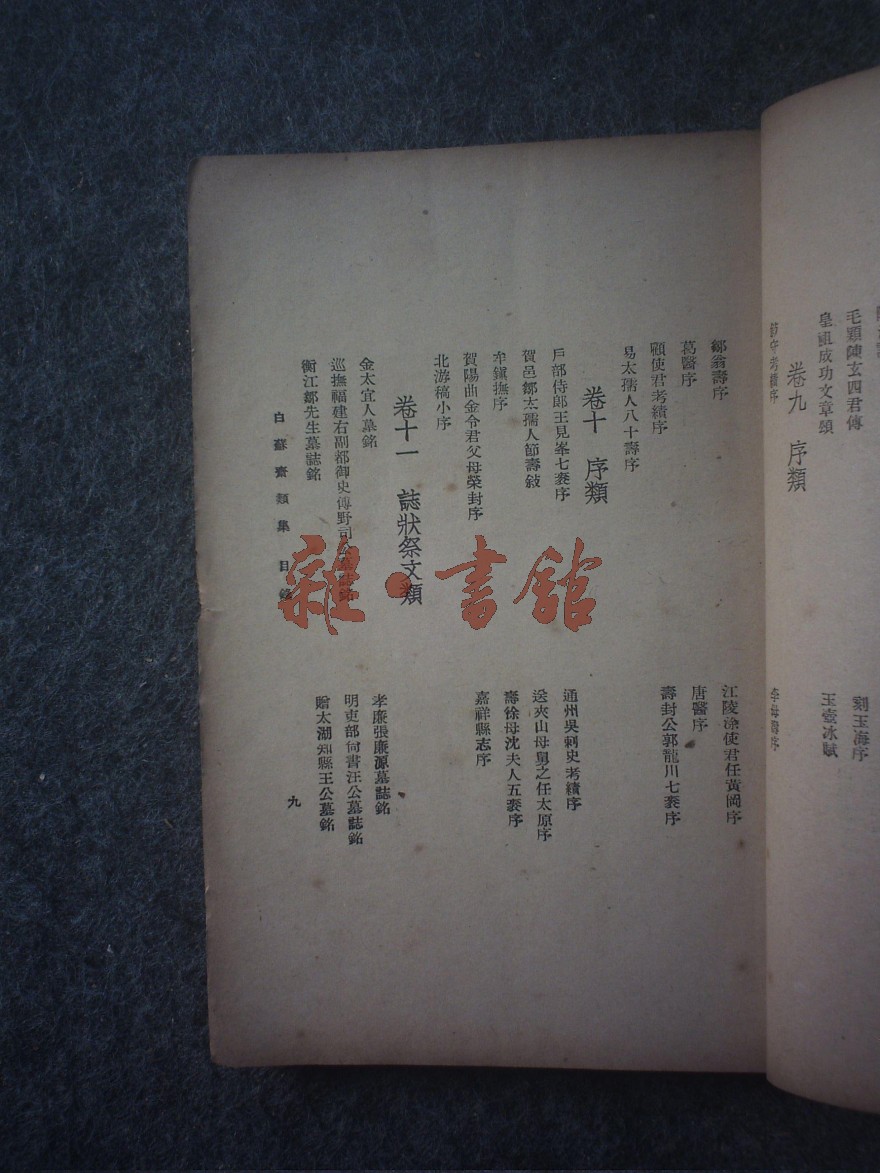 毛穎陳玄四君傳
刻玉海序
皇祖成功文章頌
玉壺冰賦
卷九 序類
鄒翁壽序
江陵涂使君任黃岡序
葛醫序
唐醫序
顧使君考績序
壽封公郭龍川七袠序
易太孺人八十壽序
卷十 序類
戶部侍郎王見峯七袠序
通州吳刺史考績序
賀邑鄒太孺人節壽敍
送夾山母舅之任太原序
牟鎭撫序
壽徐母沈夫人五袠序
賀陽曲金令君父母榮封序
嘉祥縣志序
北游稿小序
卷十一 誌狀祭文類
金太宜人墓銘
孝廉張廉源墓誌銘
巡撫福建右副都御史傅野司公墓誌銘
明吏部尙書汪公墓誌銘
衡江鄒先生墓誌銘
贈太湖知縣王公墓銘
白蘇齋類集 目錄
九
雜·書館